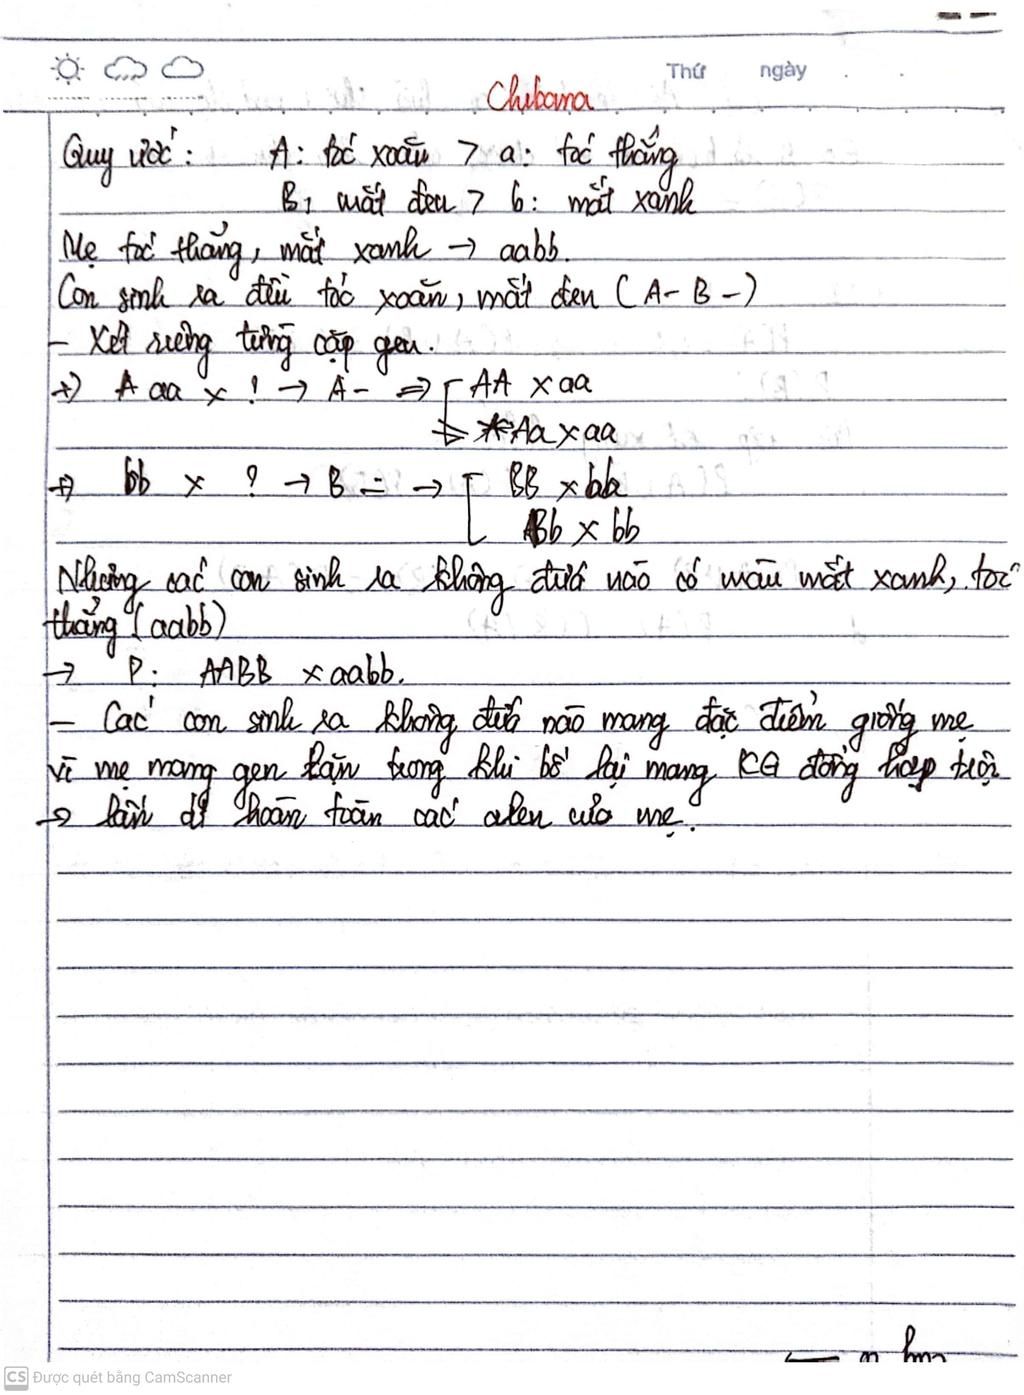 Thứ ngày
Chibana
Quy ước: A: tóc xoăn > a: tóc thẳng
B: mắt đen > b: mắt xanh
Mẹ tóc thẳng, mắt xanh → aabb.
Con sinh ra đều tóc xoăn, mắt đen (A- B-)
- Xét riêng từng cặp gen.
+) aa x ! → A- => AA x aa
Aa x aa
+) bb x ? → B- → BB x bb
Bb x bb
Nhưng các con sinh ra không đứa nào có màu mắt xanh, tóc
thẳng (aabb)
→ P: AABB x aabb.
- Các con sinh ra không đứa nào mang đặc điểm giống mẹ
vì mẹ mang gen lặn trong khi bố lại mang KG đồng hợp trội
→ lấn át hoàn toàn các alen của mẹ.
CS Được quét bằng CamScanner